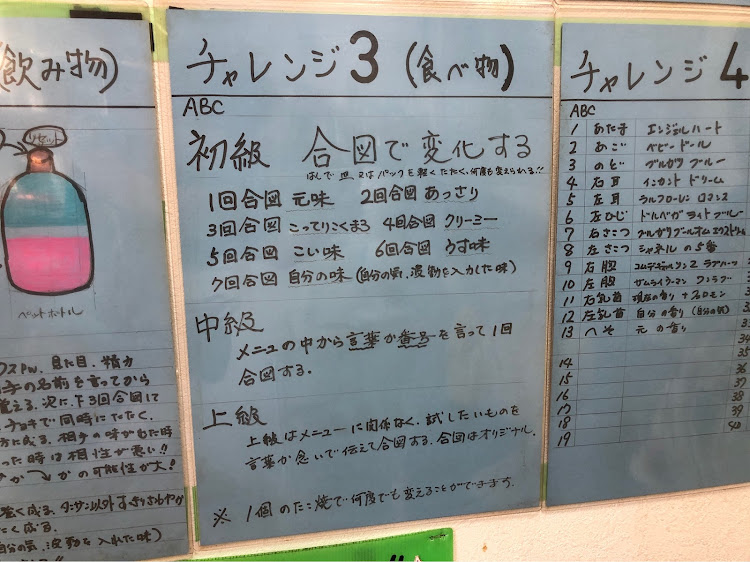 (飲み物)
リセット
ペットボトル
見た目、精力
手の名前を言ってから
覚える、次に、下3回合図して
チョキで同時にたたく。
方に成る、相手の味がした時
った時は相性が悪い!!
かの可能性が大!
強く成る、タンサン以外すっきりさわやか
たく成る。
自分の気、波動を入れた味)
チャレンジ3(食べ物)
ABC
初級 合図で変化する
はしで皿又はパックを軽くたたく、何度も変えられる!!
1回合図 元味 2回合図 あっさり
3回合図 こってりこくまろ 4回合図 クリーミー
5回合図 こい味 6回合図 うす味
7回合図 自分の味(自分の気、波動を入力した味)
中級
メニュの中から言葉か番号を言って1回
合図する。
上級
上級はメニューに関係なく、試したいものを
言葉か念いで伝えて合図する、合図はオリジナル。
※ 1個のたこ焼で何度でも変えることができます。
チャレンジ4
ABC
1 あたま エンジェルハート
2 あご ベビードール
3 のど ブルガリ ブルー
4 右耳 インカント ドリーム
5 左耳 ラルフローレン ロマンス
6 左ひじ ドルガバ ライトブルー
7 右さこつ ブルガリプールオム エクストレーム
8 左さこつ シャネルの5番
9 右腹 コムデギャルソン2
10 左腹 サムライウーマン
11 右乳首 現在の香り+フェロモン
12 左乳首 自分の香り(自分の気)
13 へそ 元の香り
14
15
16
17
18
19